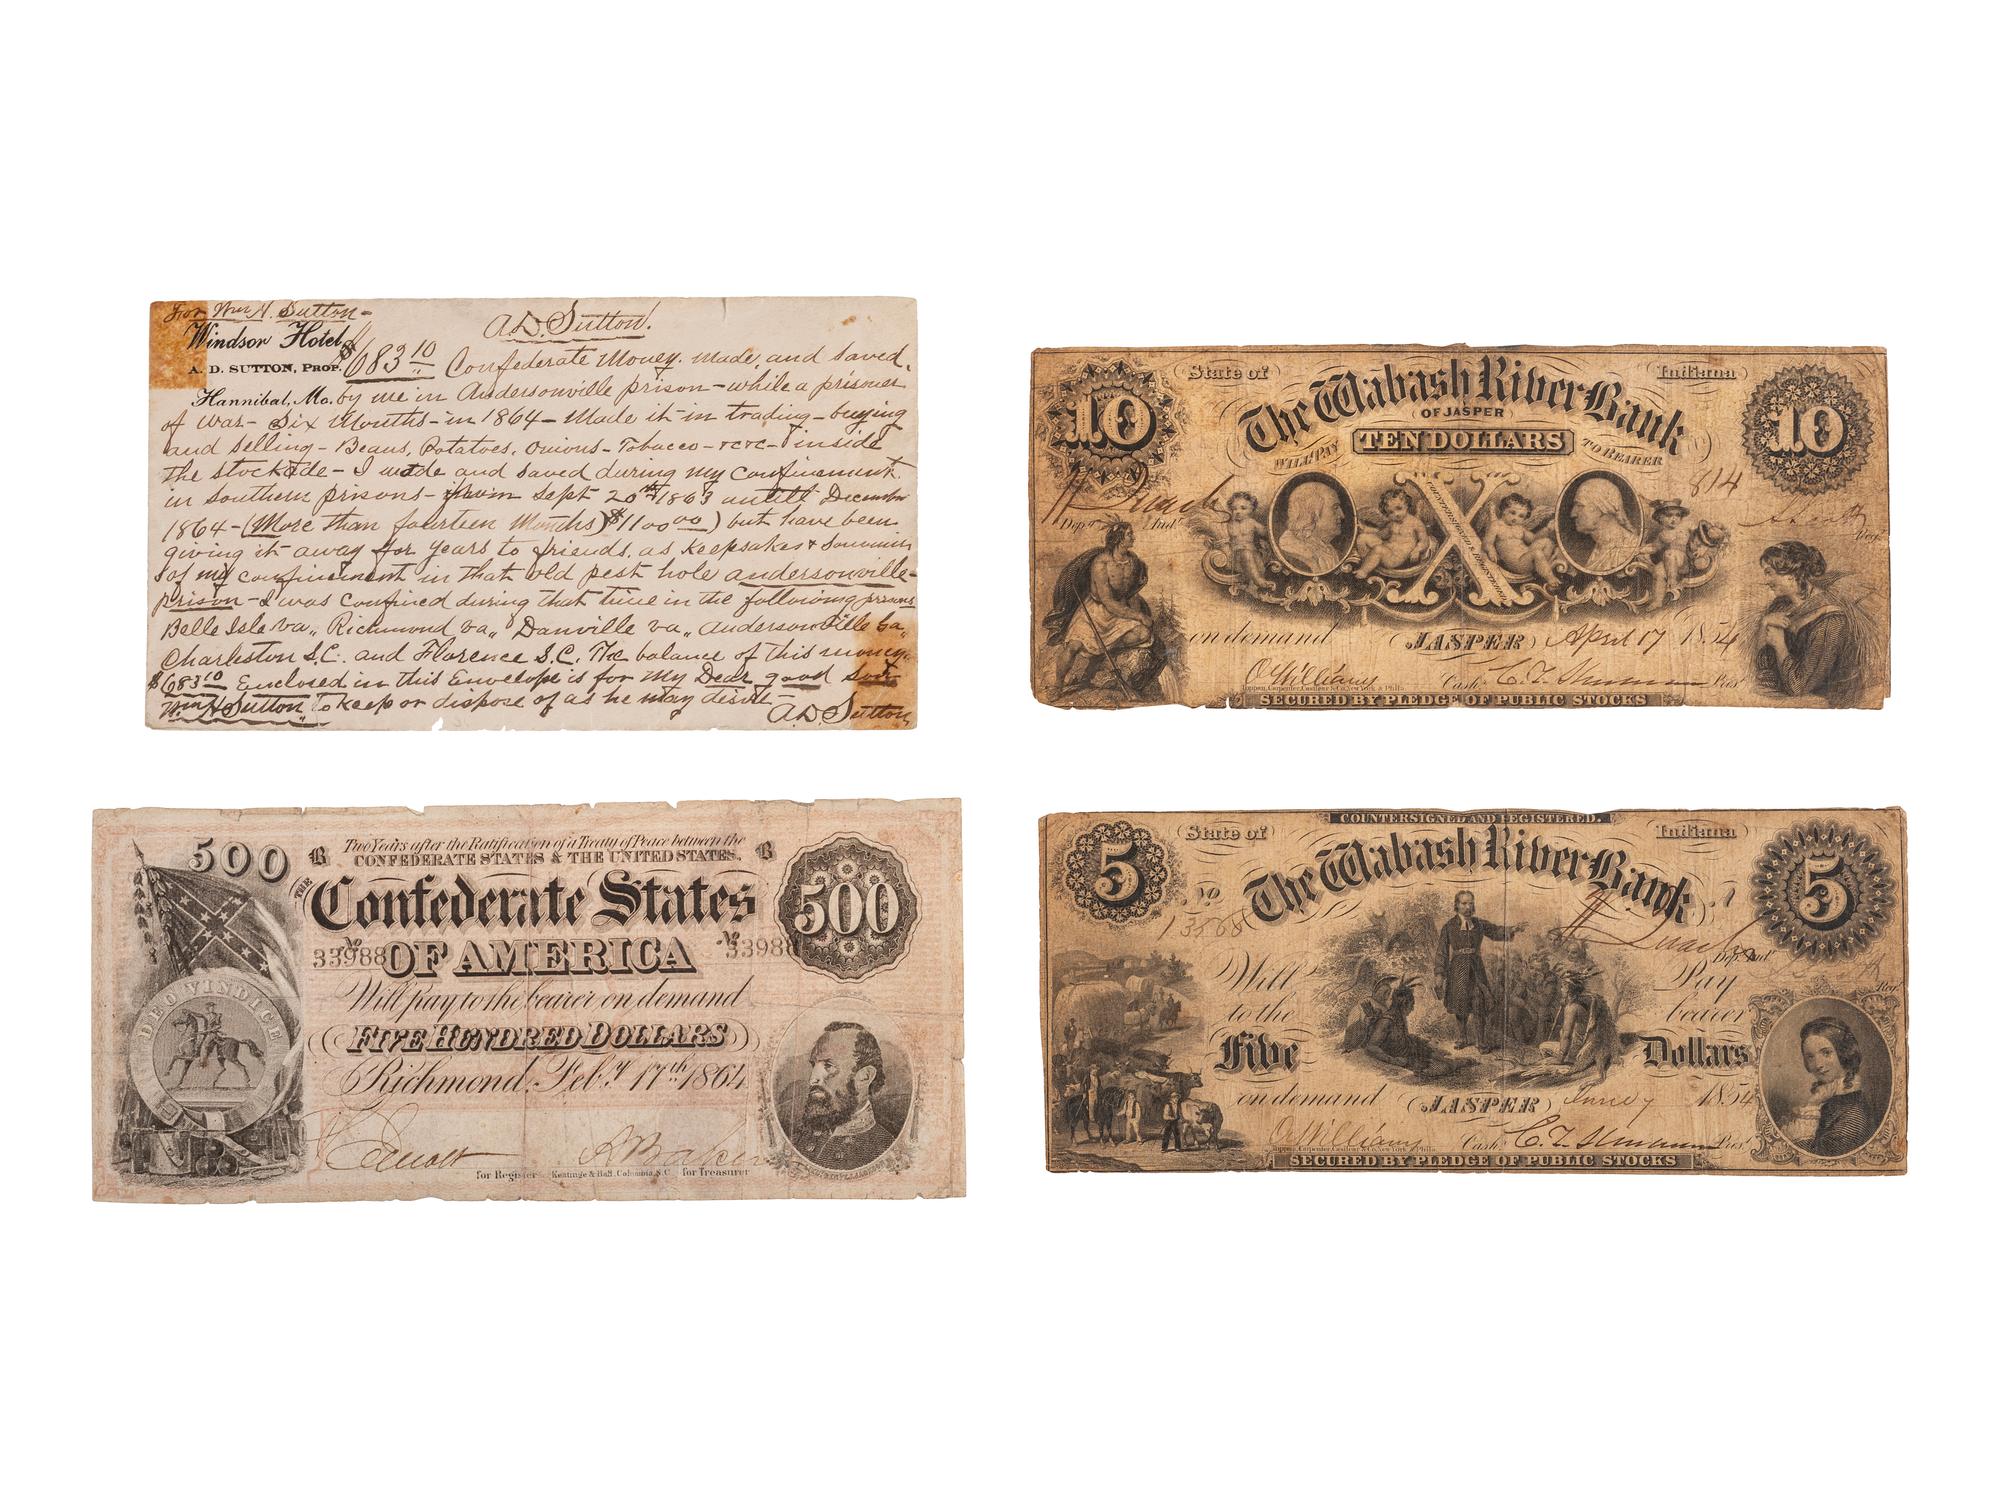 For Wm H. Sutton-
A.D. Sutton!
Windsor Hotel,
A. D. SUTTON, PROP.
Hannibal, Mo.
$683 10 Confederate Money. Made, and saved,
by me in Andersonville prison - while a prisoner
of war - Six Months - in 1864 - Made it in trading - buying
and selling - Beans, Potatoes, Onions - Tobacco - &c &c - inside
the stockade - I made and saved during my confinement
in southern prisons - from Sept 20th 1863 untill December
1864 - (More than fourteen Months) $1100 00) but have been
giving it away for years to friends, as Keepsakes & Souvenirs
of my confinement in that old pest hole andersonville-
prison - I was confined during that time in the following prisons
Belle Isle Va,, Richmond Va,, Danville Va,, Andersonville Ga,,
Charleston S.C. and Florence S.C. The balance of this money-
$683 10 Enclosed in this Envelope is for my Dear good son
Wm H Sutton,, To keep or dispose of as he may desire -
A.D Sutton,
State of
Indiana
The Wabash River Bank
OF JASPER
10
10
WILL PAY
TEN DOLLARS
TO BEARER
814
X
COUNTERSIGNED & REGISTERED
Reg.
on demand
JASPER
April 17 1854
Cash.
Pres.
Toppan, Carpenter, Casilear & Co. New York & Phila.
SECURED BY PLEDGE OF PUBLIC STOCKS
500
B
Two Years after the Ratification of a Treaty of Peace between the
CONFEDERATE STATES & THE UNITED STATES.
B
THE
Confederate States
500
No 33988
OF AMERICA
No 33988
DEO VINDICE
Will pay to the bearer on demand
FIVE HUNDRED DOLLARS
Richmond, Feb.y 17th 1864
for Register
Keatinge & Ball, Columbia, S.C.
for Treasurer
COUNTERSIGNED AND REGISTERED.
State of
Indiana
5
The Wabash River Bank
5
No
13568
Will
Pay
Reg.
to the
bearer
Five
Dollars
on demand
JASPER
June 7 1854
Cash.
Pres.
Toppan, Carpenter, Casilear & Co. New York & Phila.
SECURED BY PLEDGE OF PUBLIC STOCKS